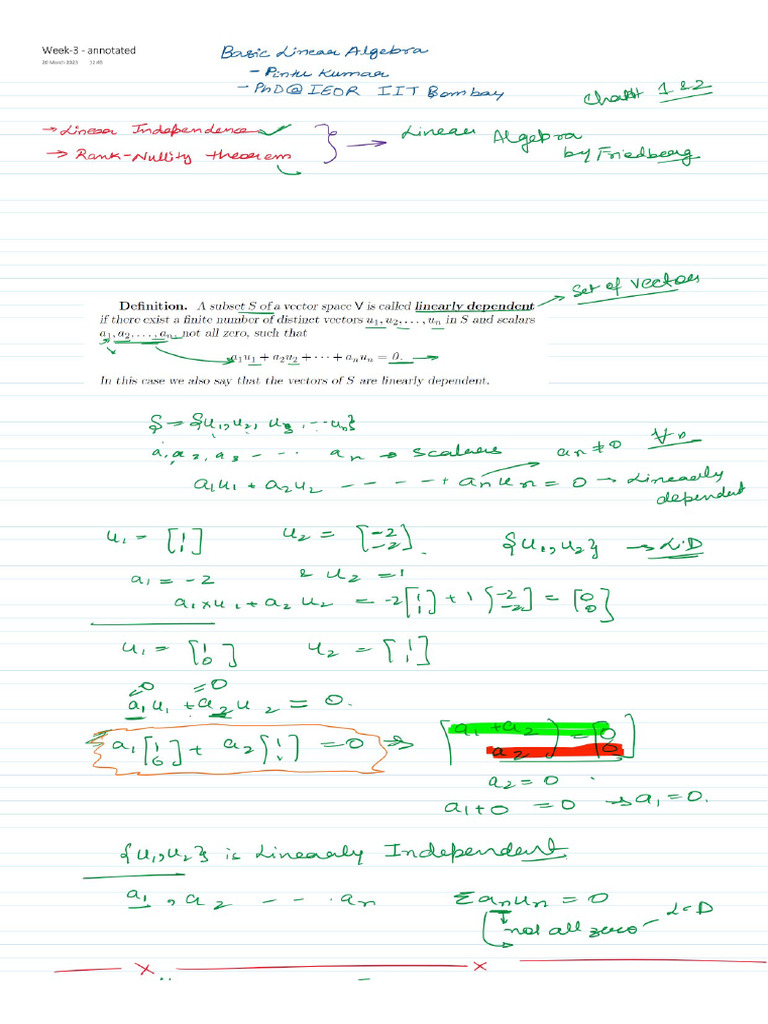 Week-3 - annotated
20 March 2023 12:40
Basic Linear Algebra
- Pintu Kumar
- PhD@IEOR IIT Bombay
1 & 2
→ Linear Independence ✓
→ Rank-Nullity theorem
→ Linear Algebra
by Friedberg
Definition. A subset S of a vector space V is called linearly dependent
if there exist a finite number of distinct vectors u₁, u₂, ..., uₙ in S and scalars
a₁, a₂, ..., aₙ, not all zero, such that
a₁u₁ + a₂u₂ + ··· + aₙuₙ = 0.
In this case we also say that the vectors of S are linearly dependent.
→ set of vectors
S → {u₁, u₂, u₃, ... uₙ}
a₁, a₂, a₃ --- aₙ → scalars
aₙ ≠ 0 ∀ n
a₁u₁ + a₂u₂ ----- + aₙuₙ = 0 → Linearly
dependent
u₁ = [1 1] u₂ = [-2 -2] {u₁, u₂} → L.D
a₁ = -2 & u₂ = 1
a₁×u₁ + a₂u₂ = -2[1 1] + 1[-2 -2] = [0 0]
u₁ = [1 0] u₂ = [1 1]
=0 =0
a₁u₁ + a₂u₂ = 0.
a₁[1 0] + a₂[1 1] = 0 ⇒ [a₁+a₂ a₂] = [0 0]
a₂ = 0
a₁+0 = 0 → a₁ = 0.
{u₁, u₂} is Linearly Independent
a₁, a₂ --- aₙ Σaₙuₙ = 0
not all zero - L-D